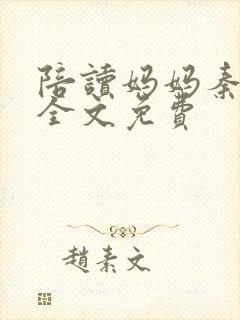 陪讀媽媽秦
全文免費
趙素文